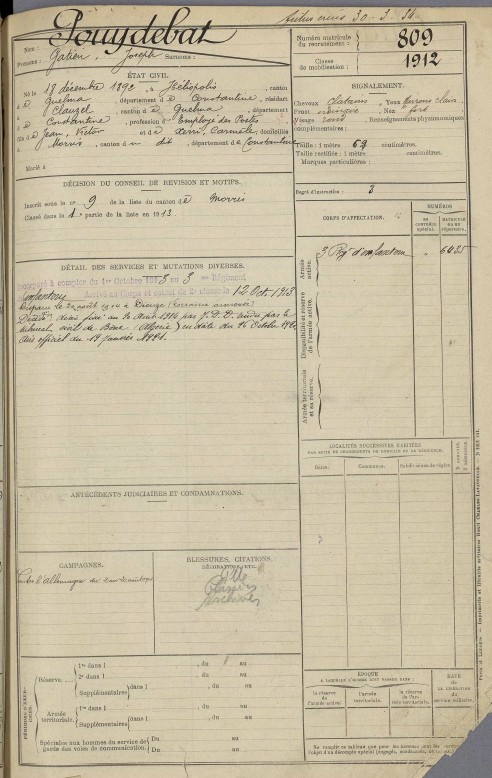 Pouydebat
Nom :
Prénoms : Gatien, Joseph Surnoms :
Numéro matricule du recrutement : 809
Classe de mobilisation : 1912
ÉTAT CIVIL.
Né le 18 décembre 1892, à Héliopolis, canton
de Guelma, département de Constantine, résidant
à Clauzel, canton de Guelma, département
de Constantine, profession d'Employé des Postes
fils de Jean, Victor et de Xerri, Carmèle, domiciliés
à Morris, canton d dit, département de Constantine
Marié à
SIGNALEMENT.
Cheveux châtains, Yeux marrons clairs
Front Nez fort
Visage rond, Renseignements physionomiques
complémentaires :
Taille : 1 mètre 69 centimètres.
Taille rectifiée : 1 mètre centimètres.
Marques particulières :
Degré d'instruction : 3
DÉCISION DU CONSEIL DE RÉVISION ET MOTIFS.
Inscrit sous le n° 9 de la liste du canton de Morris
Classé dans la 1e partie de la liste en 1913
CORPS D'AFFECTATION.
NUMÉROS
AU CONTRÔLE spécial.
MATRICULE OU AU RÉPERTOIRE.
Armée active.
3e Régt d'infanterie
6425
Disponibilité et réserve de l'armée active.
Armée territoriale et sa réserve.
DÉTAIL DES SERVICES ET MUTATIONS DIVERSES.
Incorporé à compter du 1er Octobre 1913 au 3me Régiment
d'infanterie
Arrivé au Corps et soldat de 2e classe le 12 Oct. 1913
Disparu le 20 août 1914 à Dieuze (Lorraine annexée)
Décès fixé au 20 Août 1914 par J.D.D. rendu par le
tribunal civil de Bône (Algérie) en date du 16 Octobre 1920
Avis officiel du 19 janvier 1921.
LOCALITÉS SUCCESSIVES HABITÉES
PAR SUITE DE CHANGEMENTS DE DOMICILE OU DE RÉSIDENCE.
Dates.
Communes.
Subdivisions de région.
ANTÉCÉDENTS JUDICIAIRES ET CONDAMNATIONS.
CAMPAGNES.
Contre l'Allemagne du
BLESSURES, CITATIONS,
DÉCORATIONS, ETC.
PÉRIODES D'EXERCICES.
Réserve.
1re dans l , du au
2e dans l , du au
Supplémentaires dans l , du au
Armée territoriale.
1re dans l , du au
Supplémentaires dans l , du au
Spéciales aux hommes du service de
garde des voies de communication.
Du au
Du au
ÉPOQUE
À LAQUELLE L'HOMME DOIT PASSER DANS :
la réserve de l'armée active.
l'armée territoriale.
la réserve de l'armée territoriale.
DATE DE LA LIBÉRATION DU service militaire.